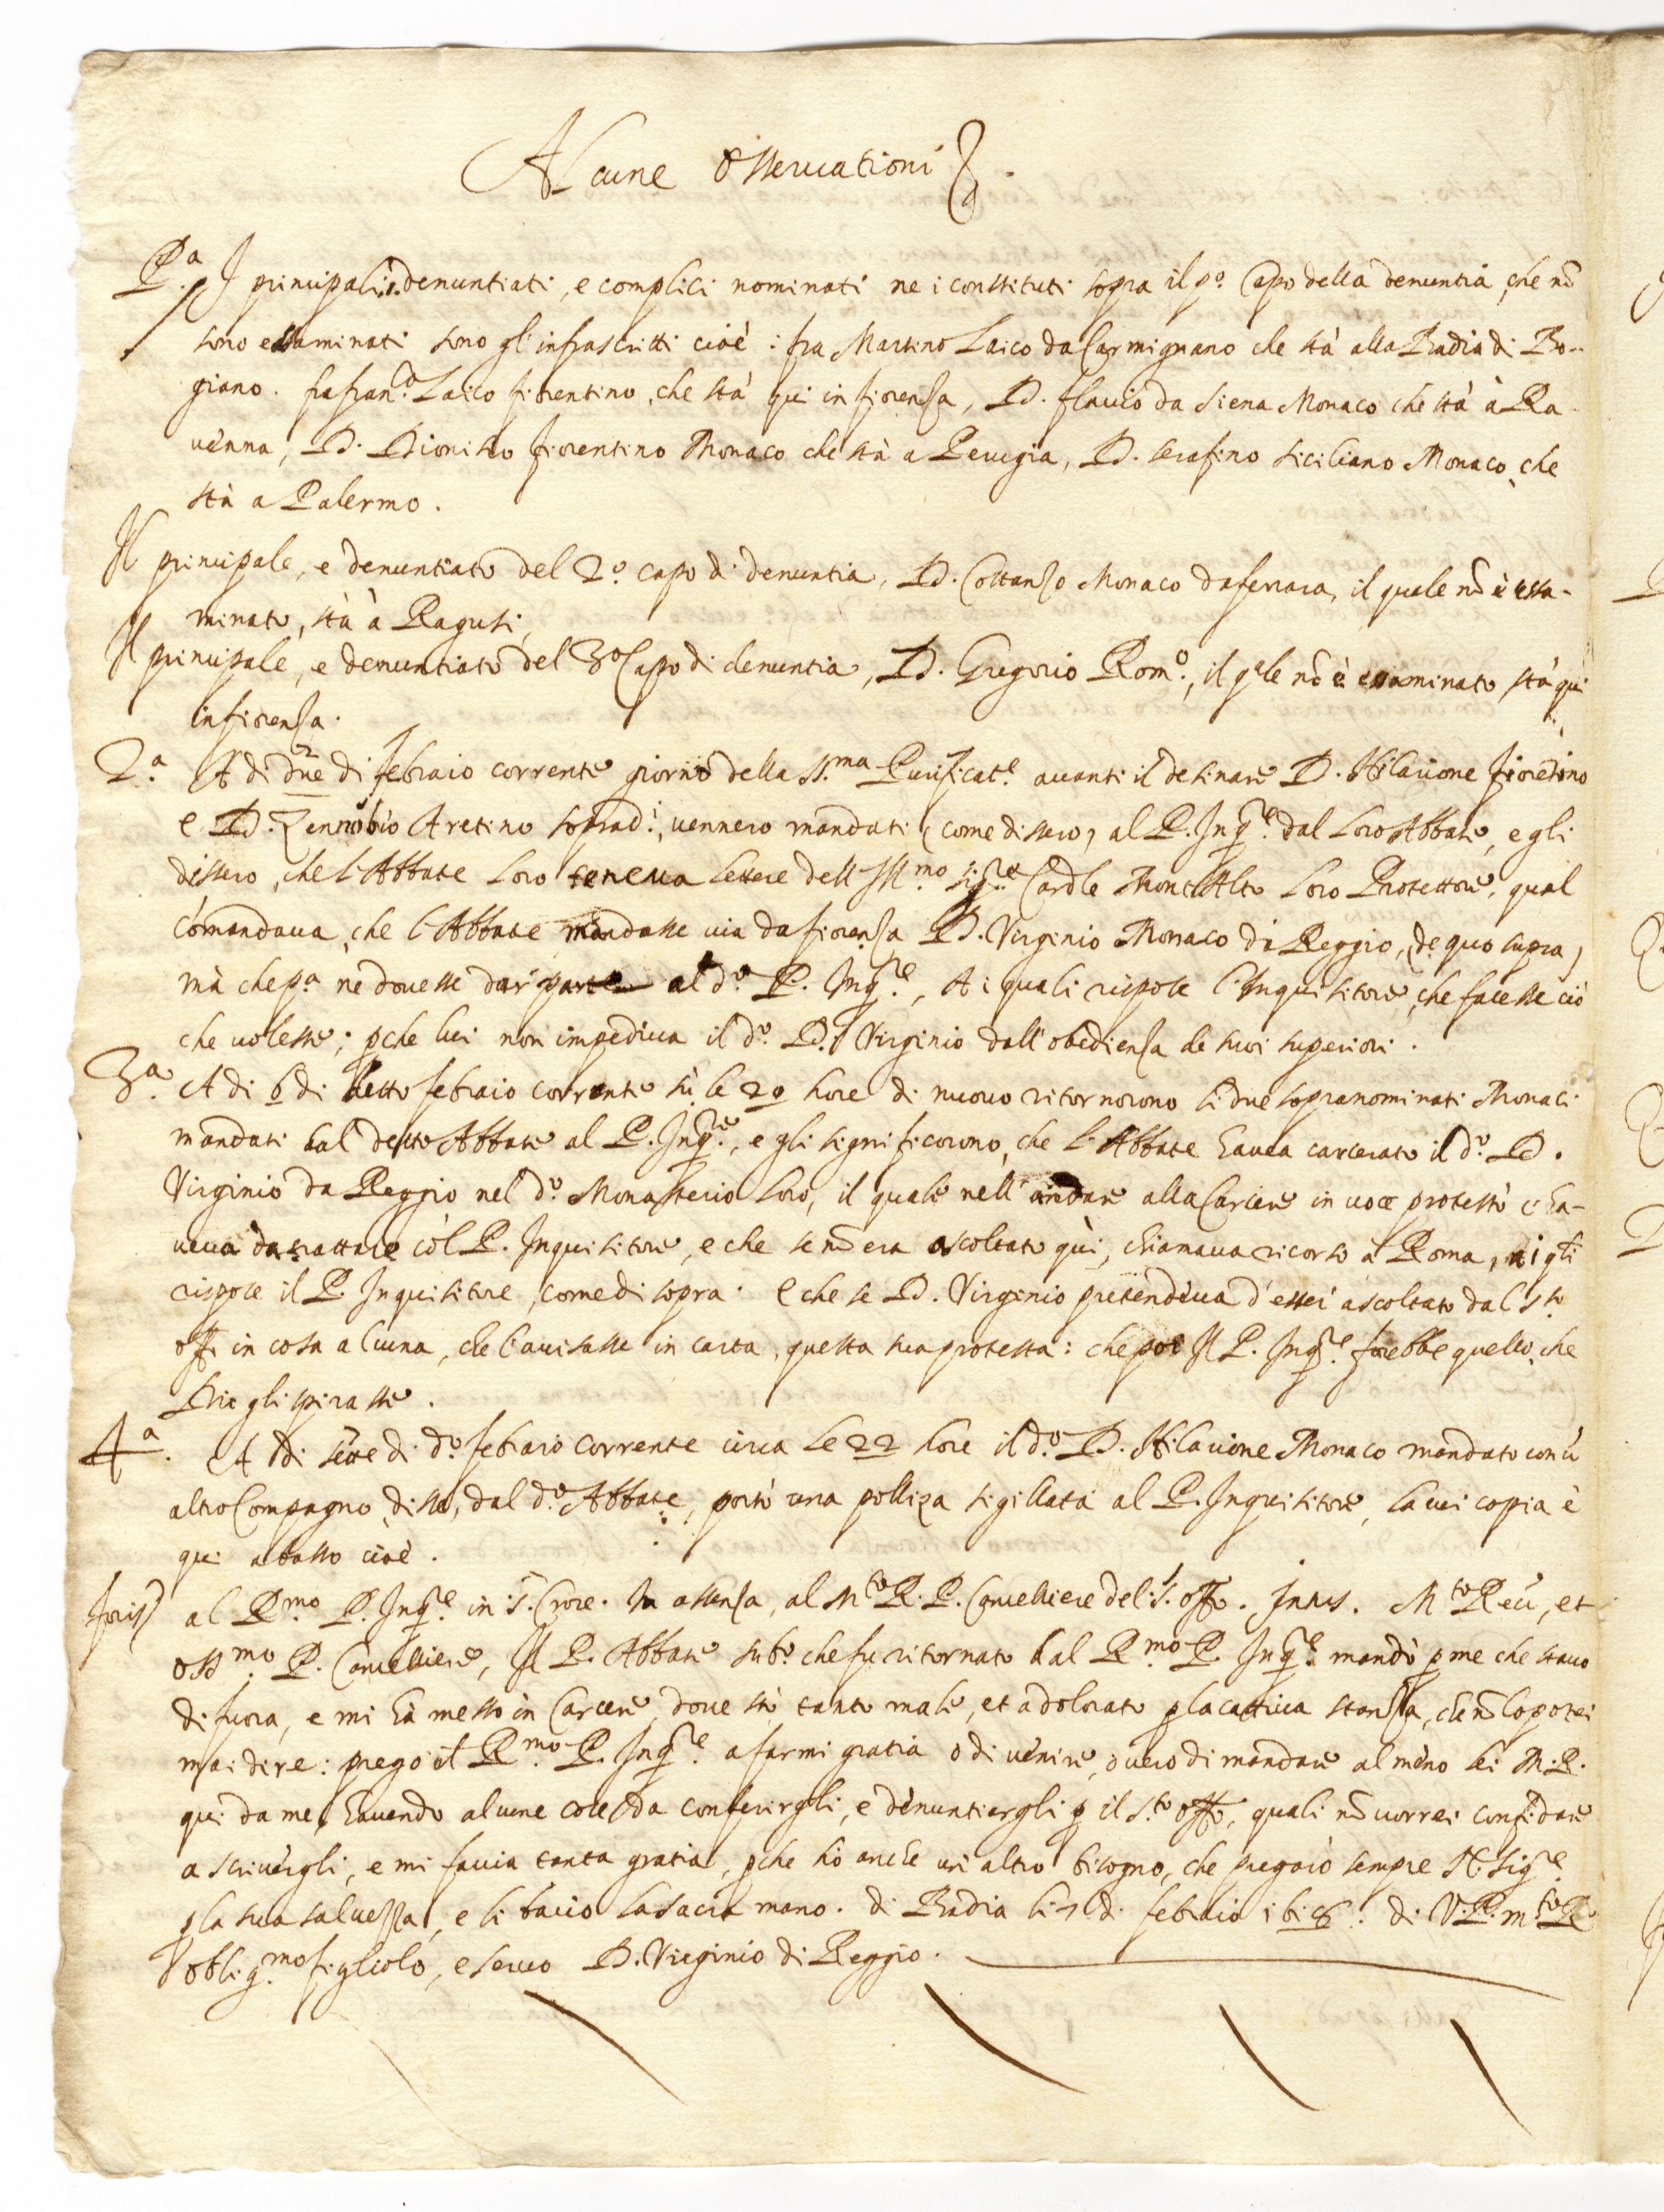 Alcune osservationi
P.a I principali denuntiati, e complici nominati ne i constituti sopra il p.o Capo della denuntia, che nõ
sono essaminati sono gl'infrascritti cioè: fra Martino Laico da Carmignano che stà alla Badia di Bo-
giano. fra fran.co Laico fiorentino, che stà qui in fiorenza, D. flavio da Siena Monaco che stà à Ra-
venna, D. Dionisio fiorentino Monaco che stà a Perugia, D. serafino siciliano Monaco, che
stà a Palermo.
Il principale, e denuntiato del 2.o capo di denuntia, D. Costanzo Monaco da ferrara, il quale nõ è essa-
minato, stà à Ragusi,
Il principale, e denuntiato del 3.o Capo di denuntia, D. Gregorio Rom.o, il q.le nõ è esaminato stà quì
in fiorenza.
2.a A di due di febraio corrente giorno della SS.ma Purificat.e avanti il desinare D. Hilarione fiorẽtino
e D. Zennobio Aretino soprad.i, vennero mandati (come dissero) al P. Inq.re dal loro Abbate, e gli
dissero, che l'Abbate loro teneva lettere dell'Ill.mo sig.re Cardle Mont'Alto loro Protettore, qual
comandava, che l'Abbate mandasse via da fiorenza D. Virginio Monaco di Reggio, (de quo supra)
mà che p.a ne dovesse dar parte al d.o P. Inq.re, A i quali rispose l'Inquisitore, che facesse ciò
che volesse; pche lui non impediva il d.o D. Virginio dall'obedienza de suoi superiori.
3.a A di 6 di detto febraio corrente sù le 20 hore di nuovo ritornorono li due sopranominati Monaci
mandati dal detto Abbate al P. Inq.re, e gli significorono, che l'Abbate havea carcerato il d.o D.
Virginio da Reggio nel d.o Monasterio loro, il quale nell'andare alla Carcere in voce protestò c'ha-
veva da trattare col P. Inquisitore, e che se nõ era ascoltato quì, chiamava ricorso à Roma,
rispose il P. Inquisitore, come di sopra. E che se D. Virginio pretendeva d'esser ascoltato dal S.to
off.o in cosa alcuna, che l'avisasse in carta, questa sua protesta: che poi Il P. Inq.re farebbe quello, che
Dio gli spirasse.
4.a A di sette di d.o febraio corrente circa le 22 hore il d.o D. Hilarione Monaco mandato con ũ
altro Compagno, disse, dal d.o Abbate, portò una polliza sigillata al P. Inquisitore, la cui copia è
qui a basso cioè.
foris al R.mo P. Inq.re in S. Croce. In assenza, al M.to R. P. Cancelliere del S. off.o. Intus. M.to Reũ, et
oss.mo P. Cancelliere, Il P. Abbate sub.o che fu ritornato dal R.mo P. Inq.re mandò p me che stavo
di fuora, e mi hà messo in Carcere, dove stò tanto male, et adolorato p la cattiva stanza, che nõ lo potrei
mai dire: prego il R.mo P. Inq.re a farmi gratia o di venire, o vero di mandare al meno lei M. R.
qui da me, havendo alcune cose da conferirgli, e denuntiargli p il S.to off.o, quali nõ vorrei confidare
a scrivergli, e mi faccia tanta gratia, pche hò anche un altro bisogno, che pregarò sempre N. Sig.re
p la sua salvezza, e li bacio la sacra mano. di Badia li 7 di febraio di V. P. m.to R.
oblig.mo figliolo, e servo D. Virginio di Reggio.